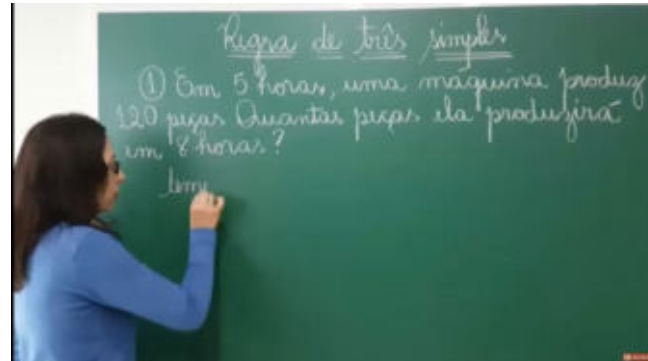 Regra de três simples
① Em 5 horas, uma máquina produz
120 peças Quantas peças ela produzirá
em 8 horas?
tem